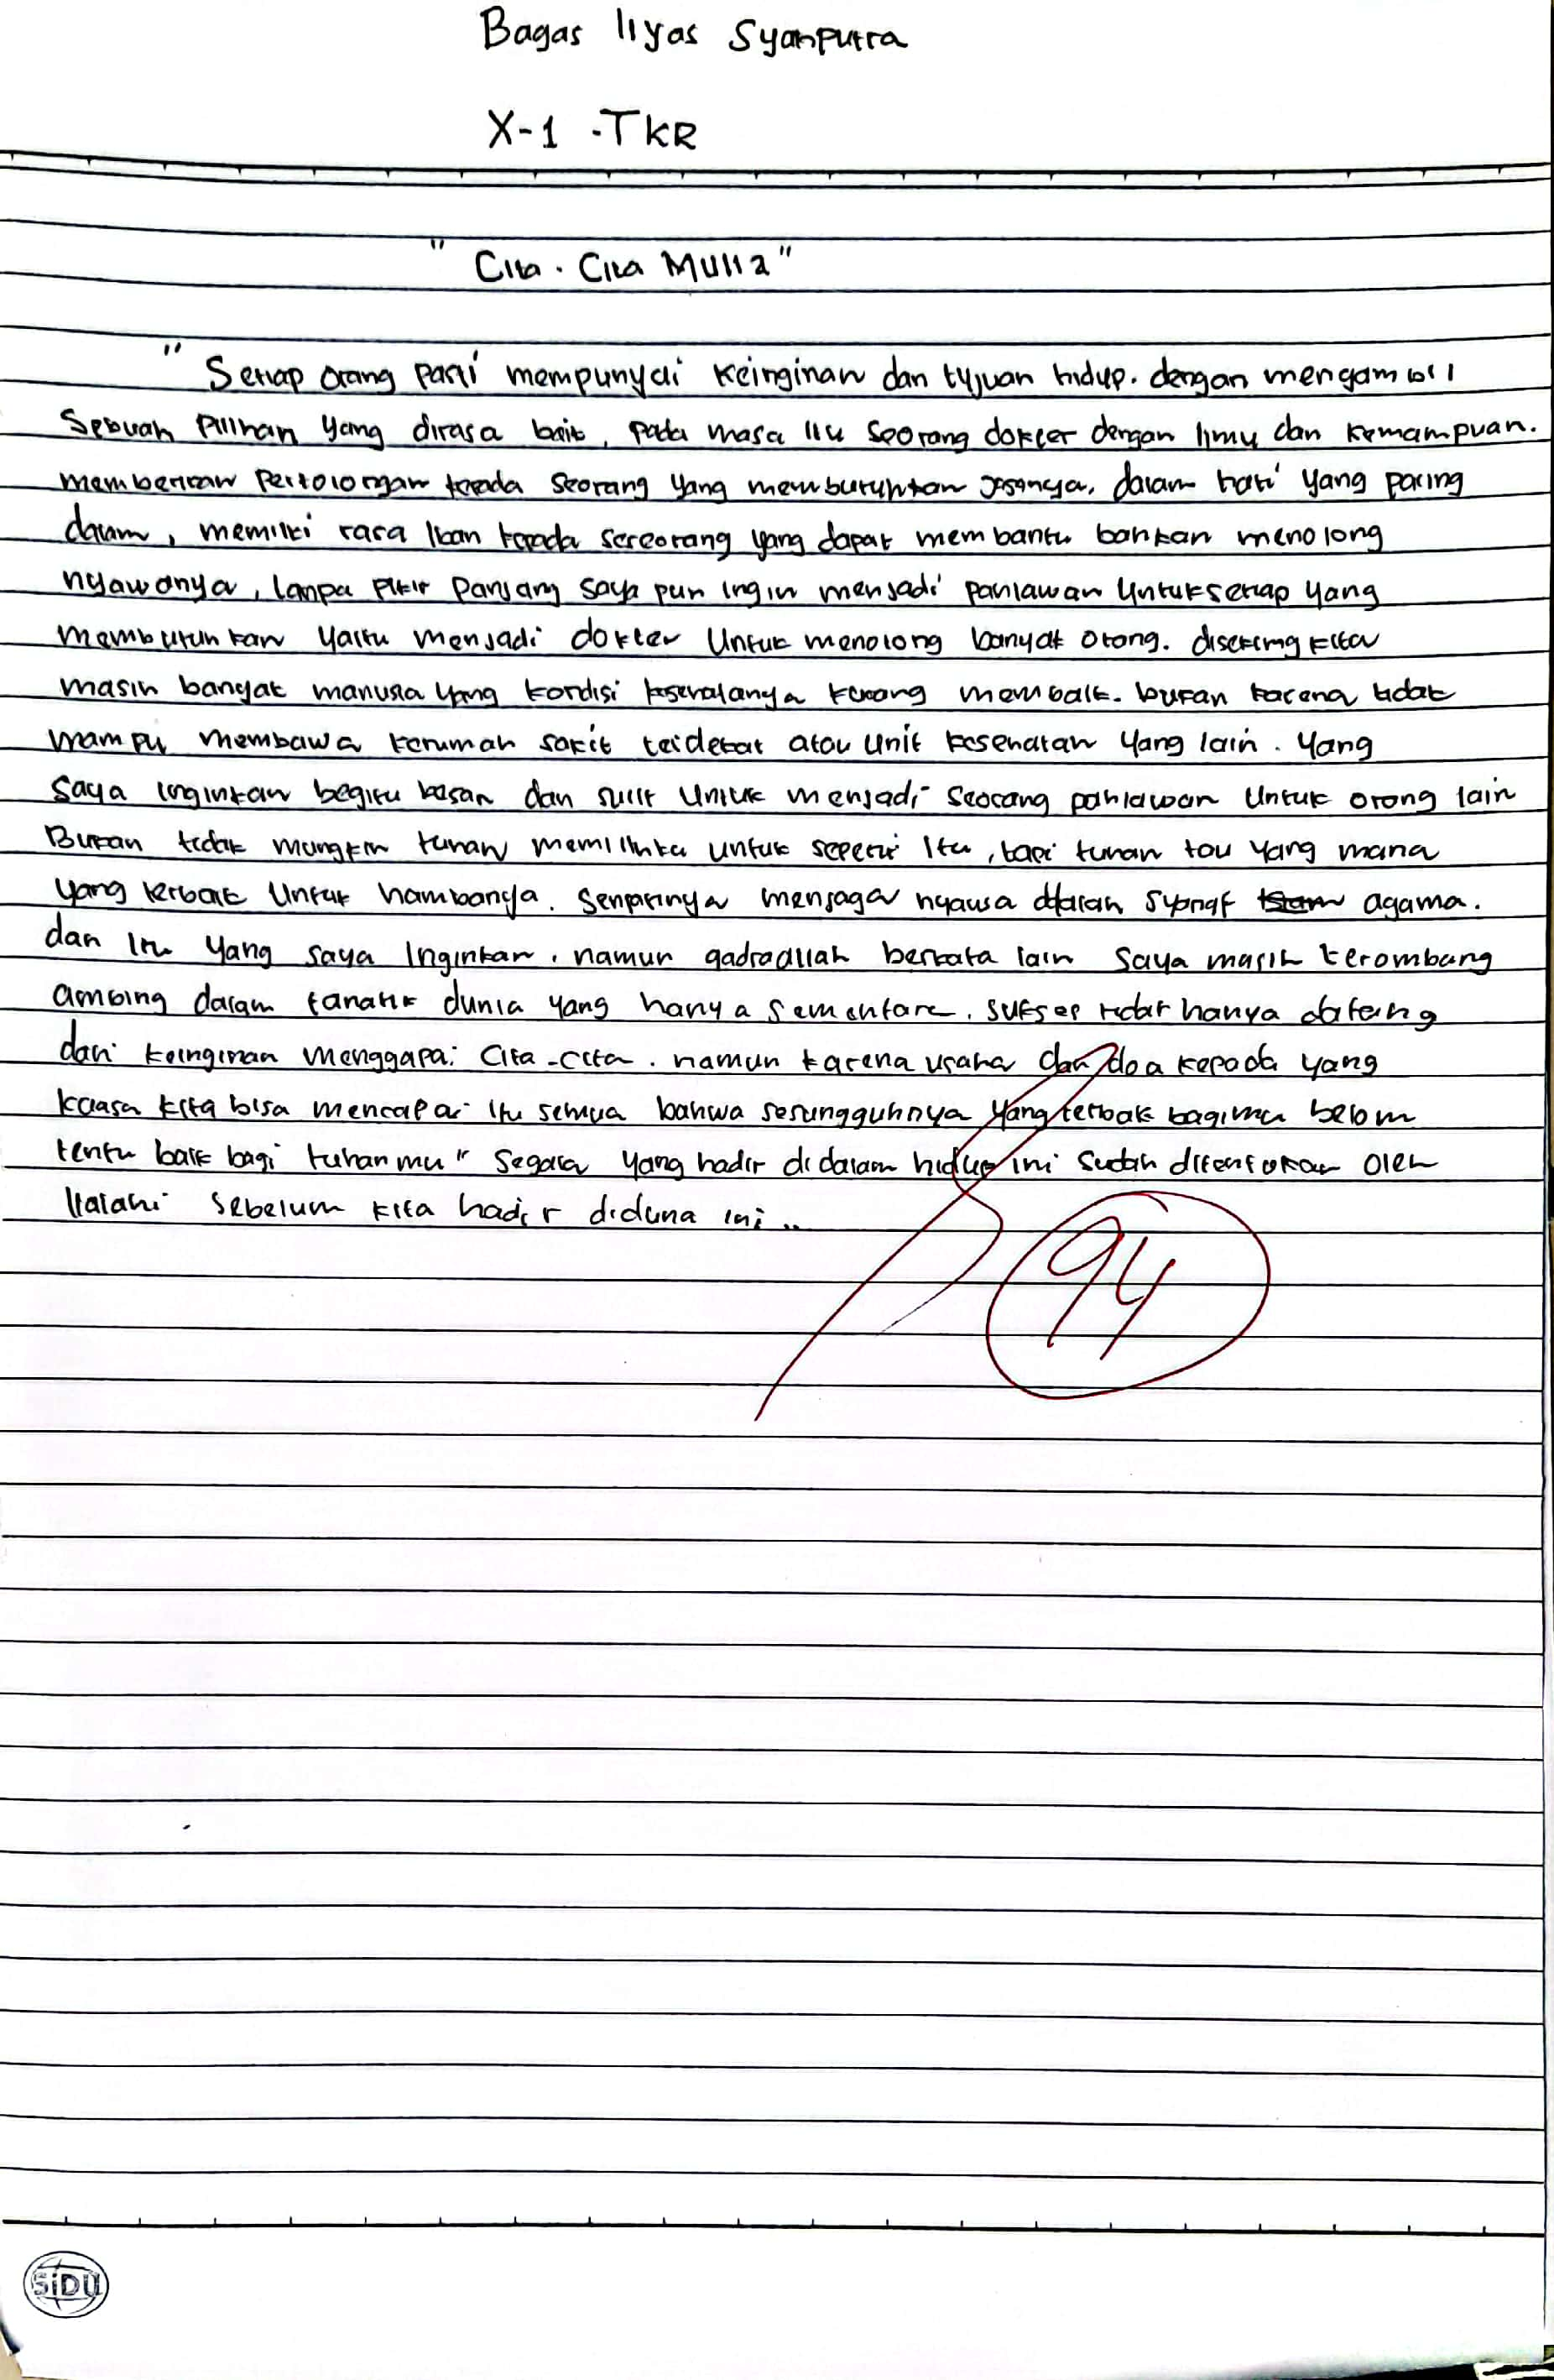 Bagas Ilyas Syahputra
X-1 -TKR
"Cita-Cita Mulia"
" Setiap orang pasti mempunyai keinginan dan tujuan hidup. dengan mengambil
Sebuah Pilihan yang dirasa baik, pada masa itu seorang dokter dengan ilmu dan kemampuan.
memberikan Pertolongan kepada seorang yang membutuhkan jasanya, dalam hati yang paling
dalam, memiliki rasa iban kepada sereorang yang dapat membantu bahkan menolong
nyawanya, tanpa pikir panjang saya pun ingin menjadi pahlawan untuk setiap yang
membutuhkan yaitu menjadi dokter Untuk menolong banyak orang. disekiring kita
masih banyak manusia yang kondisi kesehatanya kurang membaik. bukan karena tidak
mampu membawa kerumah sakit terdekat atau unit kesehatan yang lain. yang
saya inginkan begitu besar dan sulit untuk menjadi seorang pahlawan untuk orang lain
Bukan tidak mungkin tuhan memilihku untuk seperti itu, tapi tuhan tau yang mana
yang terbaik Untuk hambanya. menjaga nyawa agama.
dan itu yang saya Inginkan. namun qadraallah berkata lain saya masih terombang
ambing dalam fanatik dunia yang hanya sementara. sukses tidak hanya datang
dari keinginan menggapai cita-cita. namun karena usaha dan doa kepada yang
kuasa kita bisa mencapai itu semua bahwa sesungguhnya yang terbaik bagimu belom
tentu baik bagi tuhanmu" Segala yang hadir didalam hidup ini sudah ditentukan oleh
Ilalahi sebelum kita hadir diduna ini..
94
SiDU